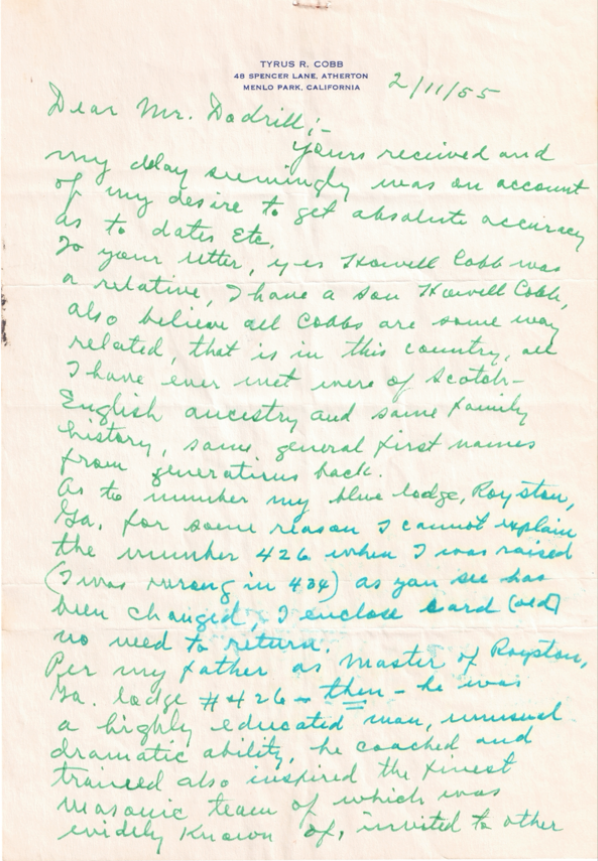 TYRUS R. COBB
48 SPENCER LANE, ATHERTON
MENLO PARK, CALIFORNIA
2/11/55
Dear Mr. Dodrill;-
Yours received and
my delay seemingly was on account
of my desire to get absolute accuracy
as to dates Etc.
To your letter, yes Howell Cobb was
a relative, I have a son Howell Cobb,
also believe all Cobbs are some way
related, that is in this country, all
I have ever met were of Scotch-
English ancestry and same family
history, same general first names
from generations back.
As to number my blue lodge, Royston,
Ga. for some reason I cannot explain
the number 426 when I was raised
(I was wrong in 434) as you see has
been changed, I enclose card (old)
no need to return.
Per my father as Master of Royston,
Ga. lodge #426 - then - he was
a highly educated man, unusual
dramatic ability, he coached and
trained also inspired the finest
Masonic team of which was
widely known of, invited to other